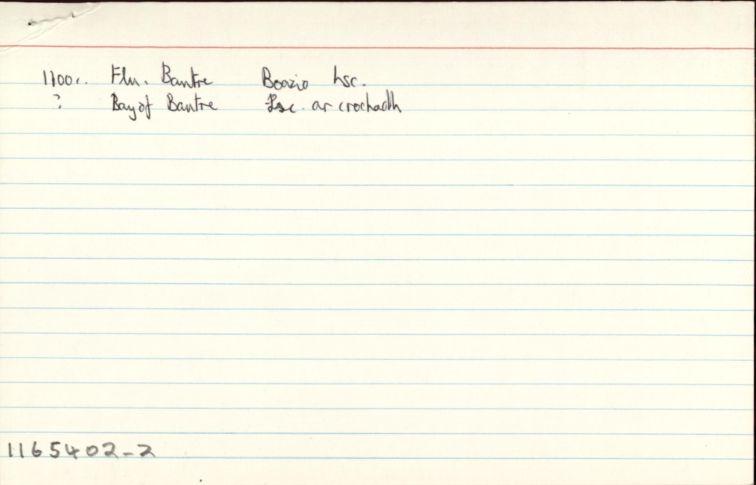 1700c. Flu. Bantre Boazio lsc.
? Bay of Bantre Lsc. ar crochadh
1165402-2